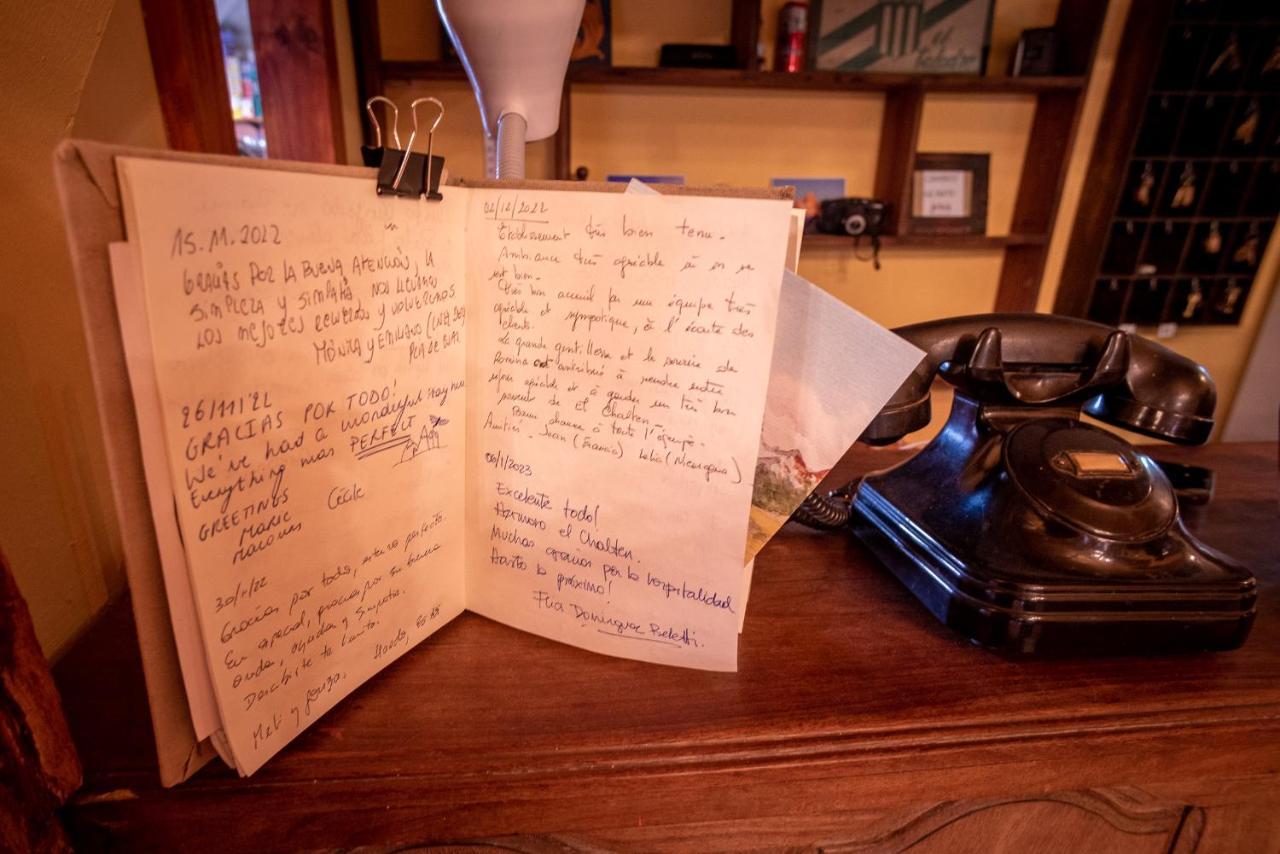 15.11.2022
GRACIAS POR LA BUENA ATENCIÓN, LA
SIMPLEZA Y SIMPATÍA, NOS LLEVAMOS
LOS MEJORES RECUERDOS Y VOLVEREMOS
MÓNICA Y EMILIANO
26/11/22
GRACIAS POR TODO!
We've had a wonderful stay here
Everything was PERFECT
GREETINGS
MARIE Cécile
30/11/22
Gracias por todo, estuvo perfecto.
En especial, gracias por su buena
onda, ayudar y simpatía.
Hasta
Meli y
02/12/2022
Etablissement très bien tenu.
Ambiance très agréable où on se
sent bien.
Très bon accueil par une équipe très
agréable et sympatique, à l'écoute des
clients.
La grande gentillesse et le sourire de
Romina ont contribué à rendre notre
séjour agréable et à garder un très bon
souvenir de el Chalten.
Bonne chance à toute l'équipe.
Amitiés - Jean (Francia) (Nicaragua)
06/1/2023
Excelente todo!
Hermoso el Chalten.
Muchas gracias por la hospitalidad
Hasta la próxima!
Domínguez